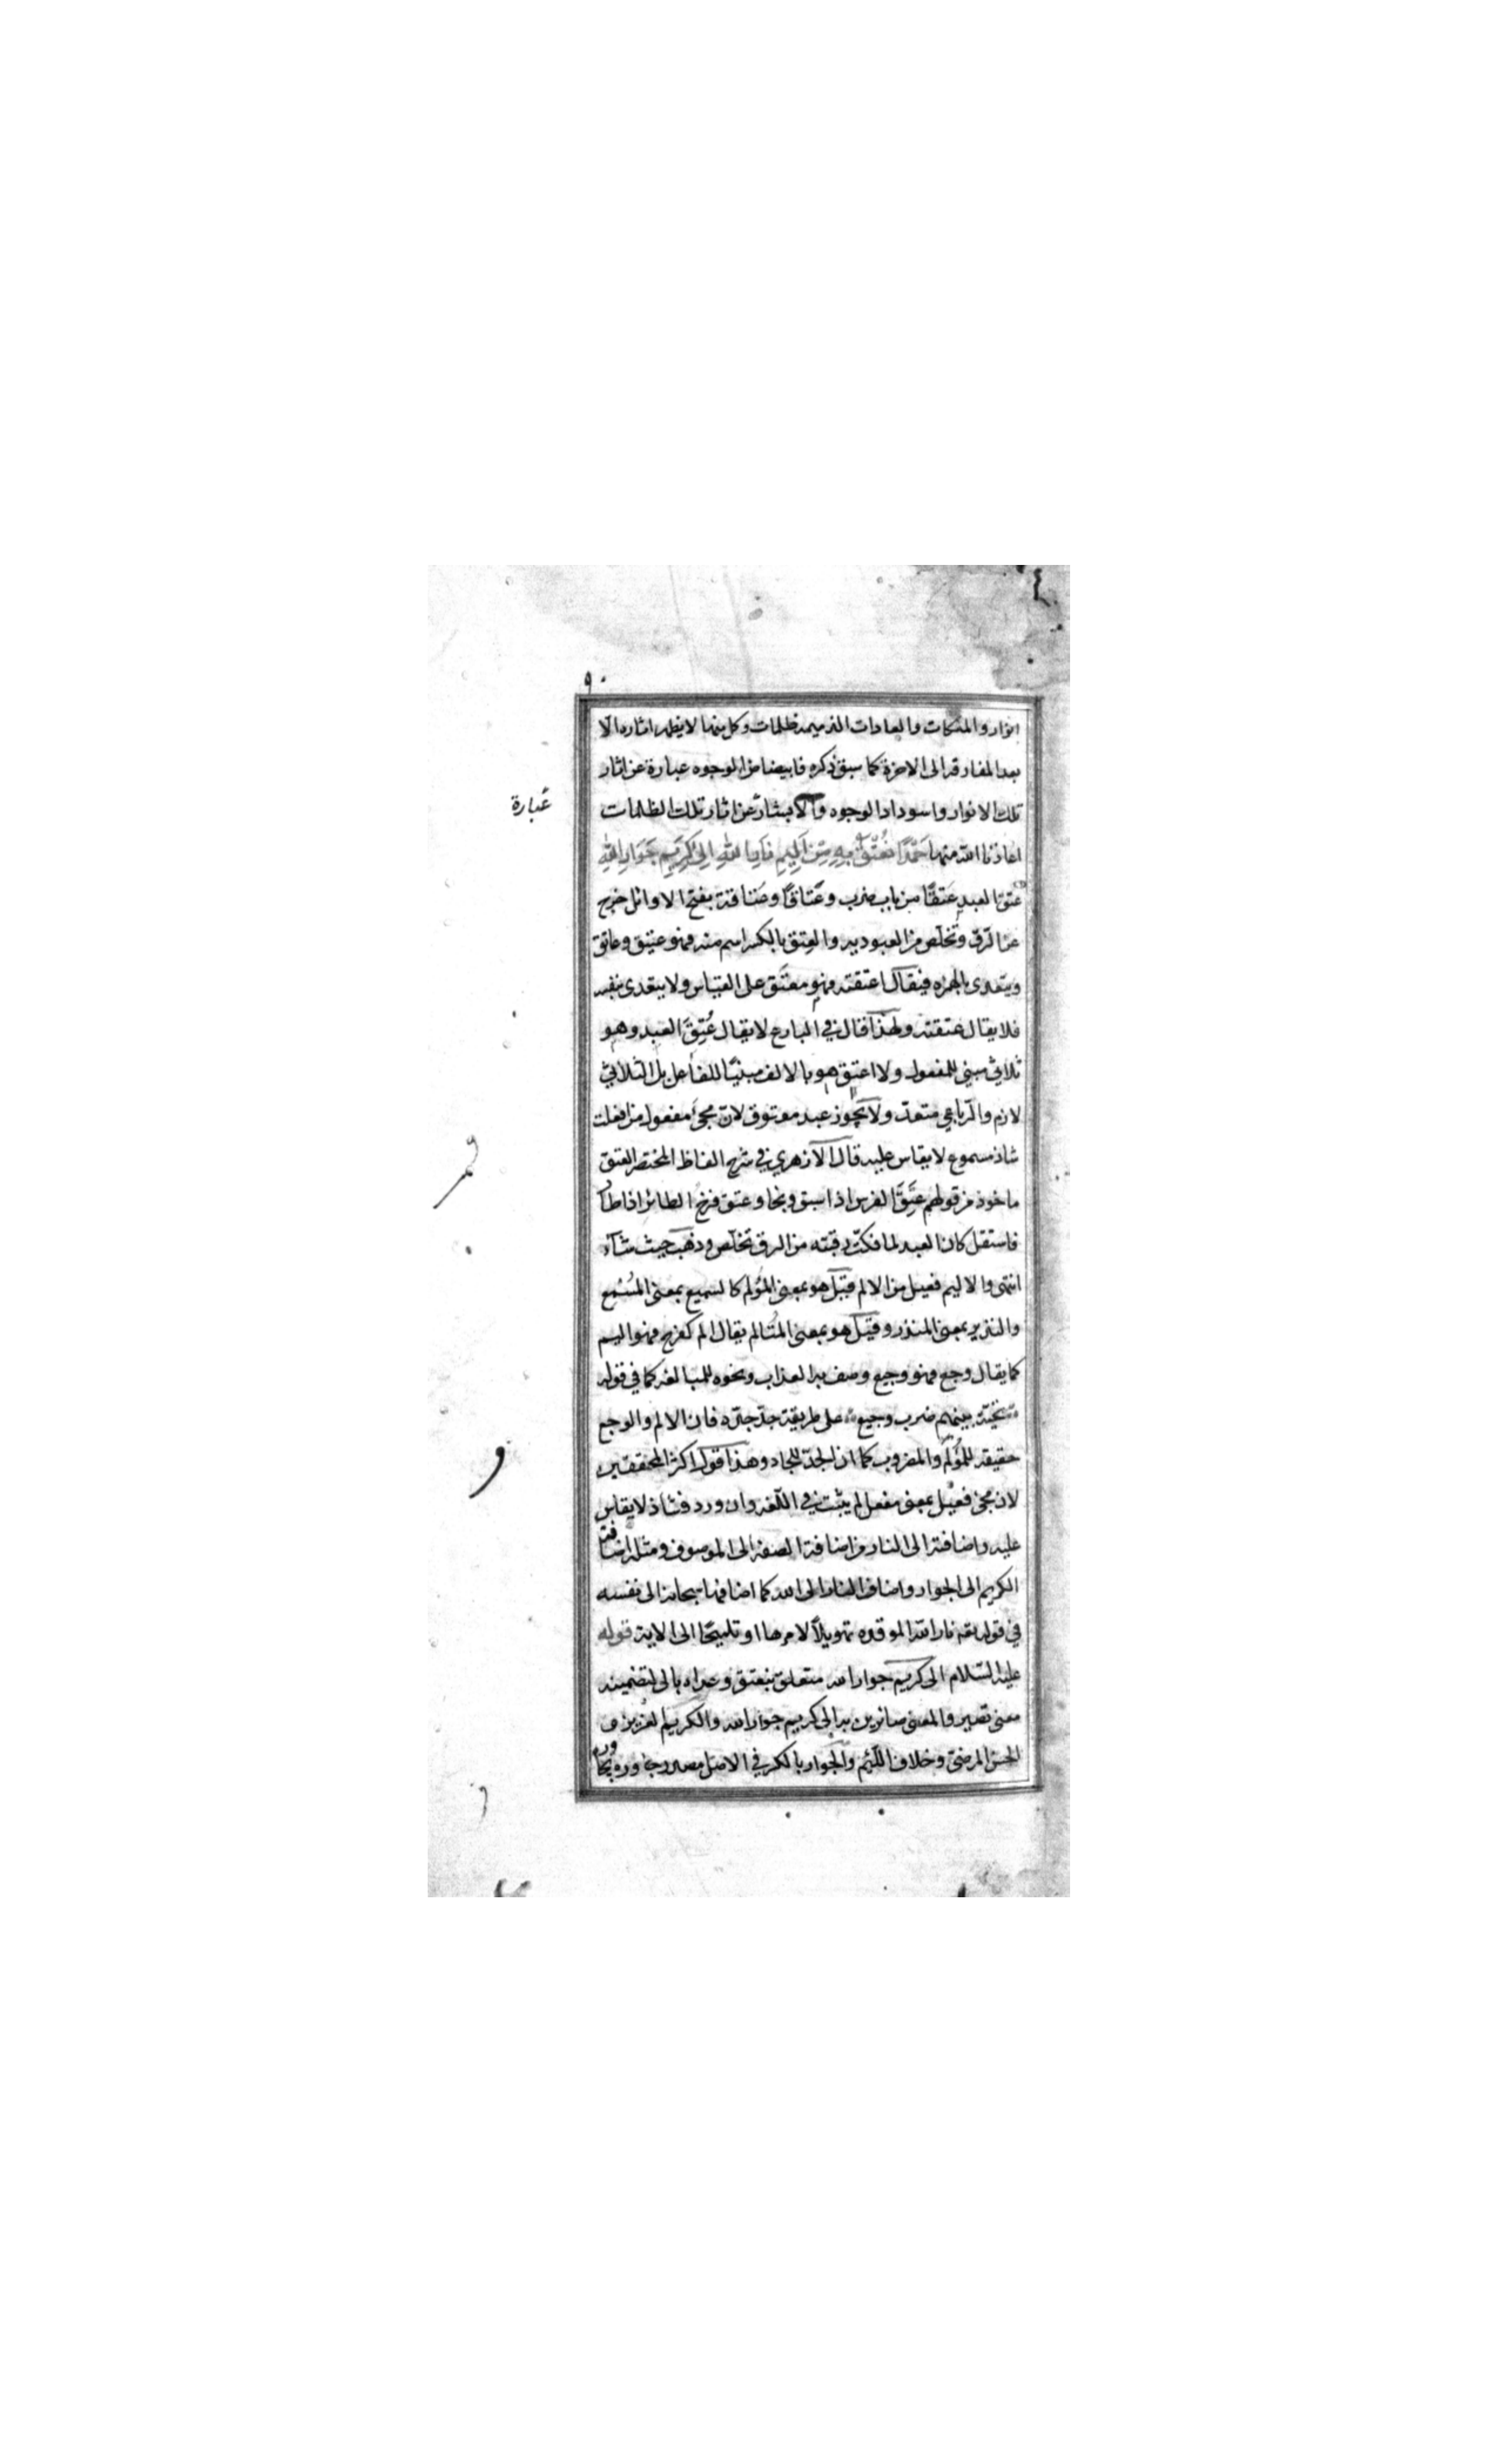 ٩٠
انوار والملكات والعادات الذميمه ظلمات وكل منها لا يظهر اثاره الا
بعد المفارقه الى الاخرة كما سبق ذكره فابيضاض الوجوه عبارة عن اثار
تلك الانوار واسوداد الوجوه والابشار عن اثار تلك الظلمات
عبارة
اعاذنا الله منها حَمْدًا نُعْتَقُ بِهِ مِنْ اَلِيمِ نَارِ اللهِ اِلى كَرِيمِ جِوَارِ اللهِ
عتق العبد عَتقًا من باب ضرب وعَتاقًا وعَتاقة بفتح الاوائل خرج
عن الرّق وتخلّص من العبوديه والعِتق بالكسر اسم منه فهو عتيق وعاتق
ويتعدى بالهمزه فيقال اعتقته فهو معتَق على القياس ولا يتعدى بنفسه
فلا يقال عتقته ولهذا قال في البارع لا يقال عُتِقَ العبد وهو
ثلاثي مبني للمفعول ولا اعتق هو بالالف مبنيًا للفاعل بل الثلاثي
لازم والرّباعي متعدّ ولا يجوز عبد معتوق لانّ مجئ مفعول من افعلت
شاذ مسموع لا يقاس عليه قال الازهري في شرح الفاظ المختصر العتق
ماخوذ من قولهم عَتَقَ الفرس اذا سبق ونجا وعتق فرخ الطائر اذا طار
فاستقل كان العبد لما فكّت رقبته من الرق تخلّص وذهب حيث شآء
انتهى والاليم فعيل من الالم قيل هو بمعنى المؤلم كالسميع بمعنى المُسْمِع
والنذير بمعنى المنذر وقيل هو بمعنى المُتالم يقال الم كفرح فهو اليم
كما يقال وجع فهو وجيع وصف به العذاب ونحوه للمبالغه كما في قوله
تحيّة بينهم ضرب وجيع على طريقة جدّ جدّه فان الالم والوجع
حقيقه للمُؤلَم والمضروب كما ان الجدّ للجاد وهذا قول اكثر المحققين
لان مجئ فعيل بمعنى مفعل لم يثبت في اللّغه وان ورد فشاذ لا يقاس
عليه واضافته الى النار من اضافة الصفه الى الموصوف ومثله اضافة
الكريم الى الجوار واضاف النار الى الله كما اضافها سبحانه الى نفسه
في قوله تعه نار الله الموقده تهويلًا لامرها او تلميحًا الى الاية قوله
عليه السّلام الى كريم جوار الله متعلق بنعتق وعداه بالى لتضمينه
معنى نصير والمعنى صائرين به الى كريم جوار الله والكريم العزيز و
الحسن المرضيّ وخلاف اللّئيم والجوار بالكسر في الاصل مصدر جاوره يجاوره